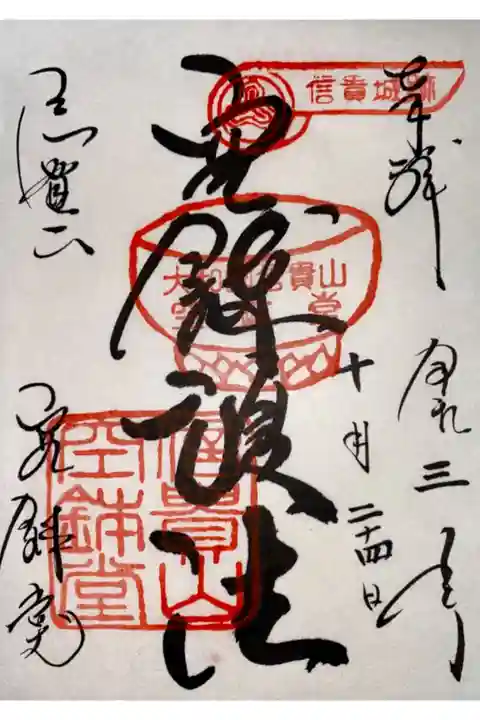 奉拝
令和三年
十月二十四日
空鉢護法
信貴山
空鉢堂
信貴城跡
大和國信貴山
空鉢堂
信貴山
空鉢堂